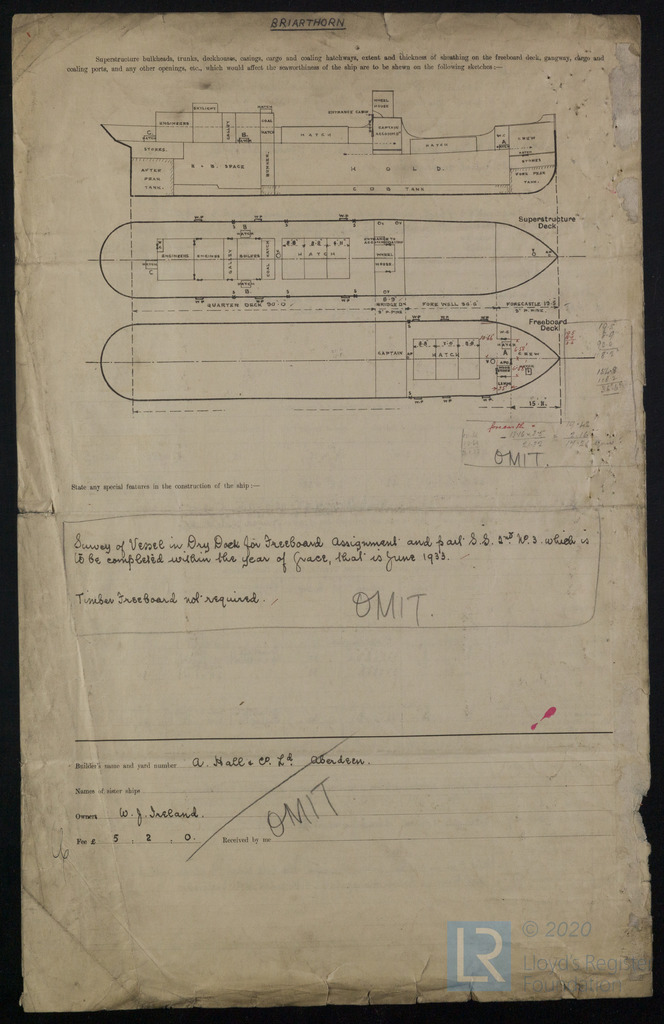 BRIARTHORN
Superstructure bulkheads, trunks, deckhouses, casings, cargo and coaling hatchways, extent and thickness of sheathing on the freeboard deck, gangway, cargo and
coaling ports, and any other openings, etc., which would affect the seaworthiness of the ship are to be shewn on the following sketches:—
SKYLIGHT
HATCH
WHEEL
HOUSE
ENTRANCE CABIN
ENGINEERS
GALLEY
B.
COAL
HATCH
HATCH
CAPTAINS
HATCH
A
CREW
C.
STORES.
STORES
AFTER
PEAK
TANK.
SPACE
BUNKER.
HOLD.
FORE PEAK
TANK.
TANK
Superstructure
Deck
B
HATCH
ENGINEERS
GALLEY
BOILERS
COAL HATCH
HATCH
WHEEL
HOUSE
C
B.
QUARTER DECK 90'·0"
BRIDGE DK
FORE WELL
FORECASTLE
Freeboard
Deck
CAPTAIN
HATCH
A
CREW
15·8.
OMIT.
State any special features in the construction of the ship:—
Survey of Vessel in Dry Dock for Freeboard Assignment and part S.S. 2nd No. 3. which is
to be completed within the year of Grace, that is June 1933.
Timber Freeboard not required.
OMIT.
Builder's name and yard number A. Hall & Co. Ld. Aberdeen.
Names of sister ships
Owners W. J. Ireland.
OMIT
Fee £ 5 : 2 : 0. Received by me
LR
© 2020
Lloyd's Register
Foundation